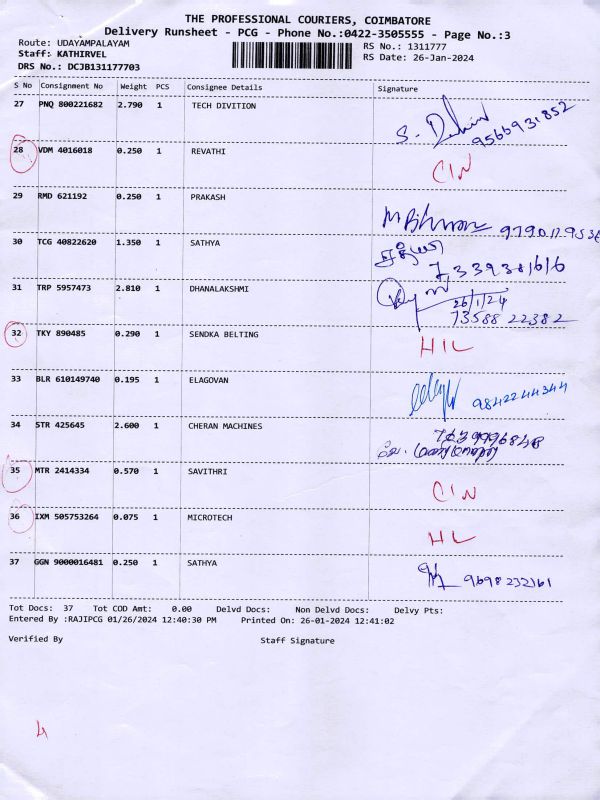 THE PROFESSIONAL COURIERS, COIMBATORE
Delivery Runsheet - PCG - Phone No.:0422-3505555 - Page No.:3
Route: UDAYAMPALAYAM
Staff: KATHIRVEL
DRS No.: DCJB131177703
RS No.: 1311777
RS Date: 26-Jan-2024
S No Consignment No Weight PCS Consignee Details Signature
27 PNQ 800221682 2.790 1 TECH DIVITION
9566931852
28 VDM 4016018 0.250 1 REVATHI CIN
29 RMD 621192 0.250 1 PRAKASH
30 TCG 40822620 1.350 1 SATHYA
7339381616
31 TRP 5957473 2.810 1 DHANALAKSHMI
26/1/24
73588 22382
32 TKY 890485 0.290 1 SENDKA BELTING HIL
33 BLR 610149740 0.195 1 ELAGOVAN
9842244344
34 STR 425645 2.600 1 CHERAN MACHINES
35 MTR 2414334 0.570 1 SAVITHRI CIN
36 IXM 505753264 0.075 1 MICROTECH HL
37 GGN 9000016481 0.250 1 SATHYA
9698232161
Tot Docs: 37 Tot COD Amt: 0.00 Delvd Docs: Non Delvd Docs: Delvy Pts:
Entered By :RAJIPCG 01/26/2024 12:40:30 PM Printed On: 26-01-2024 12:41:02
Verified By Staff Signature
4